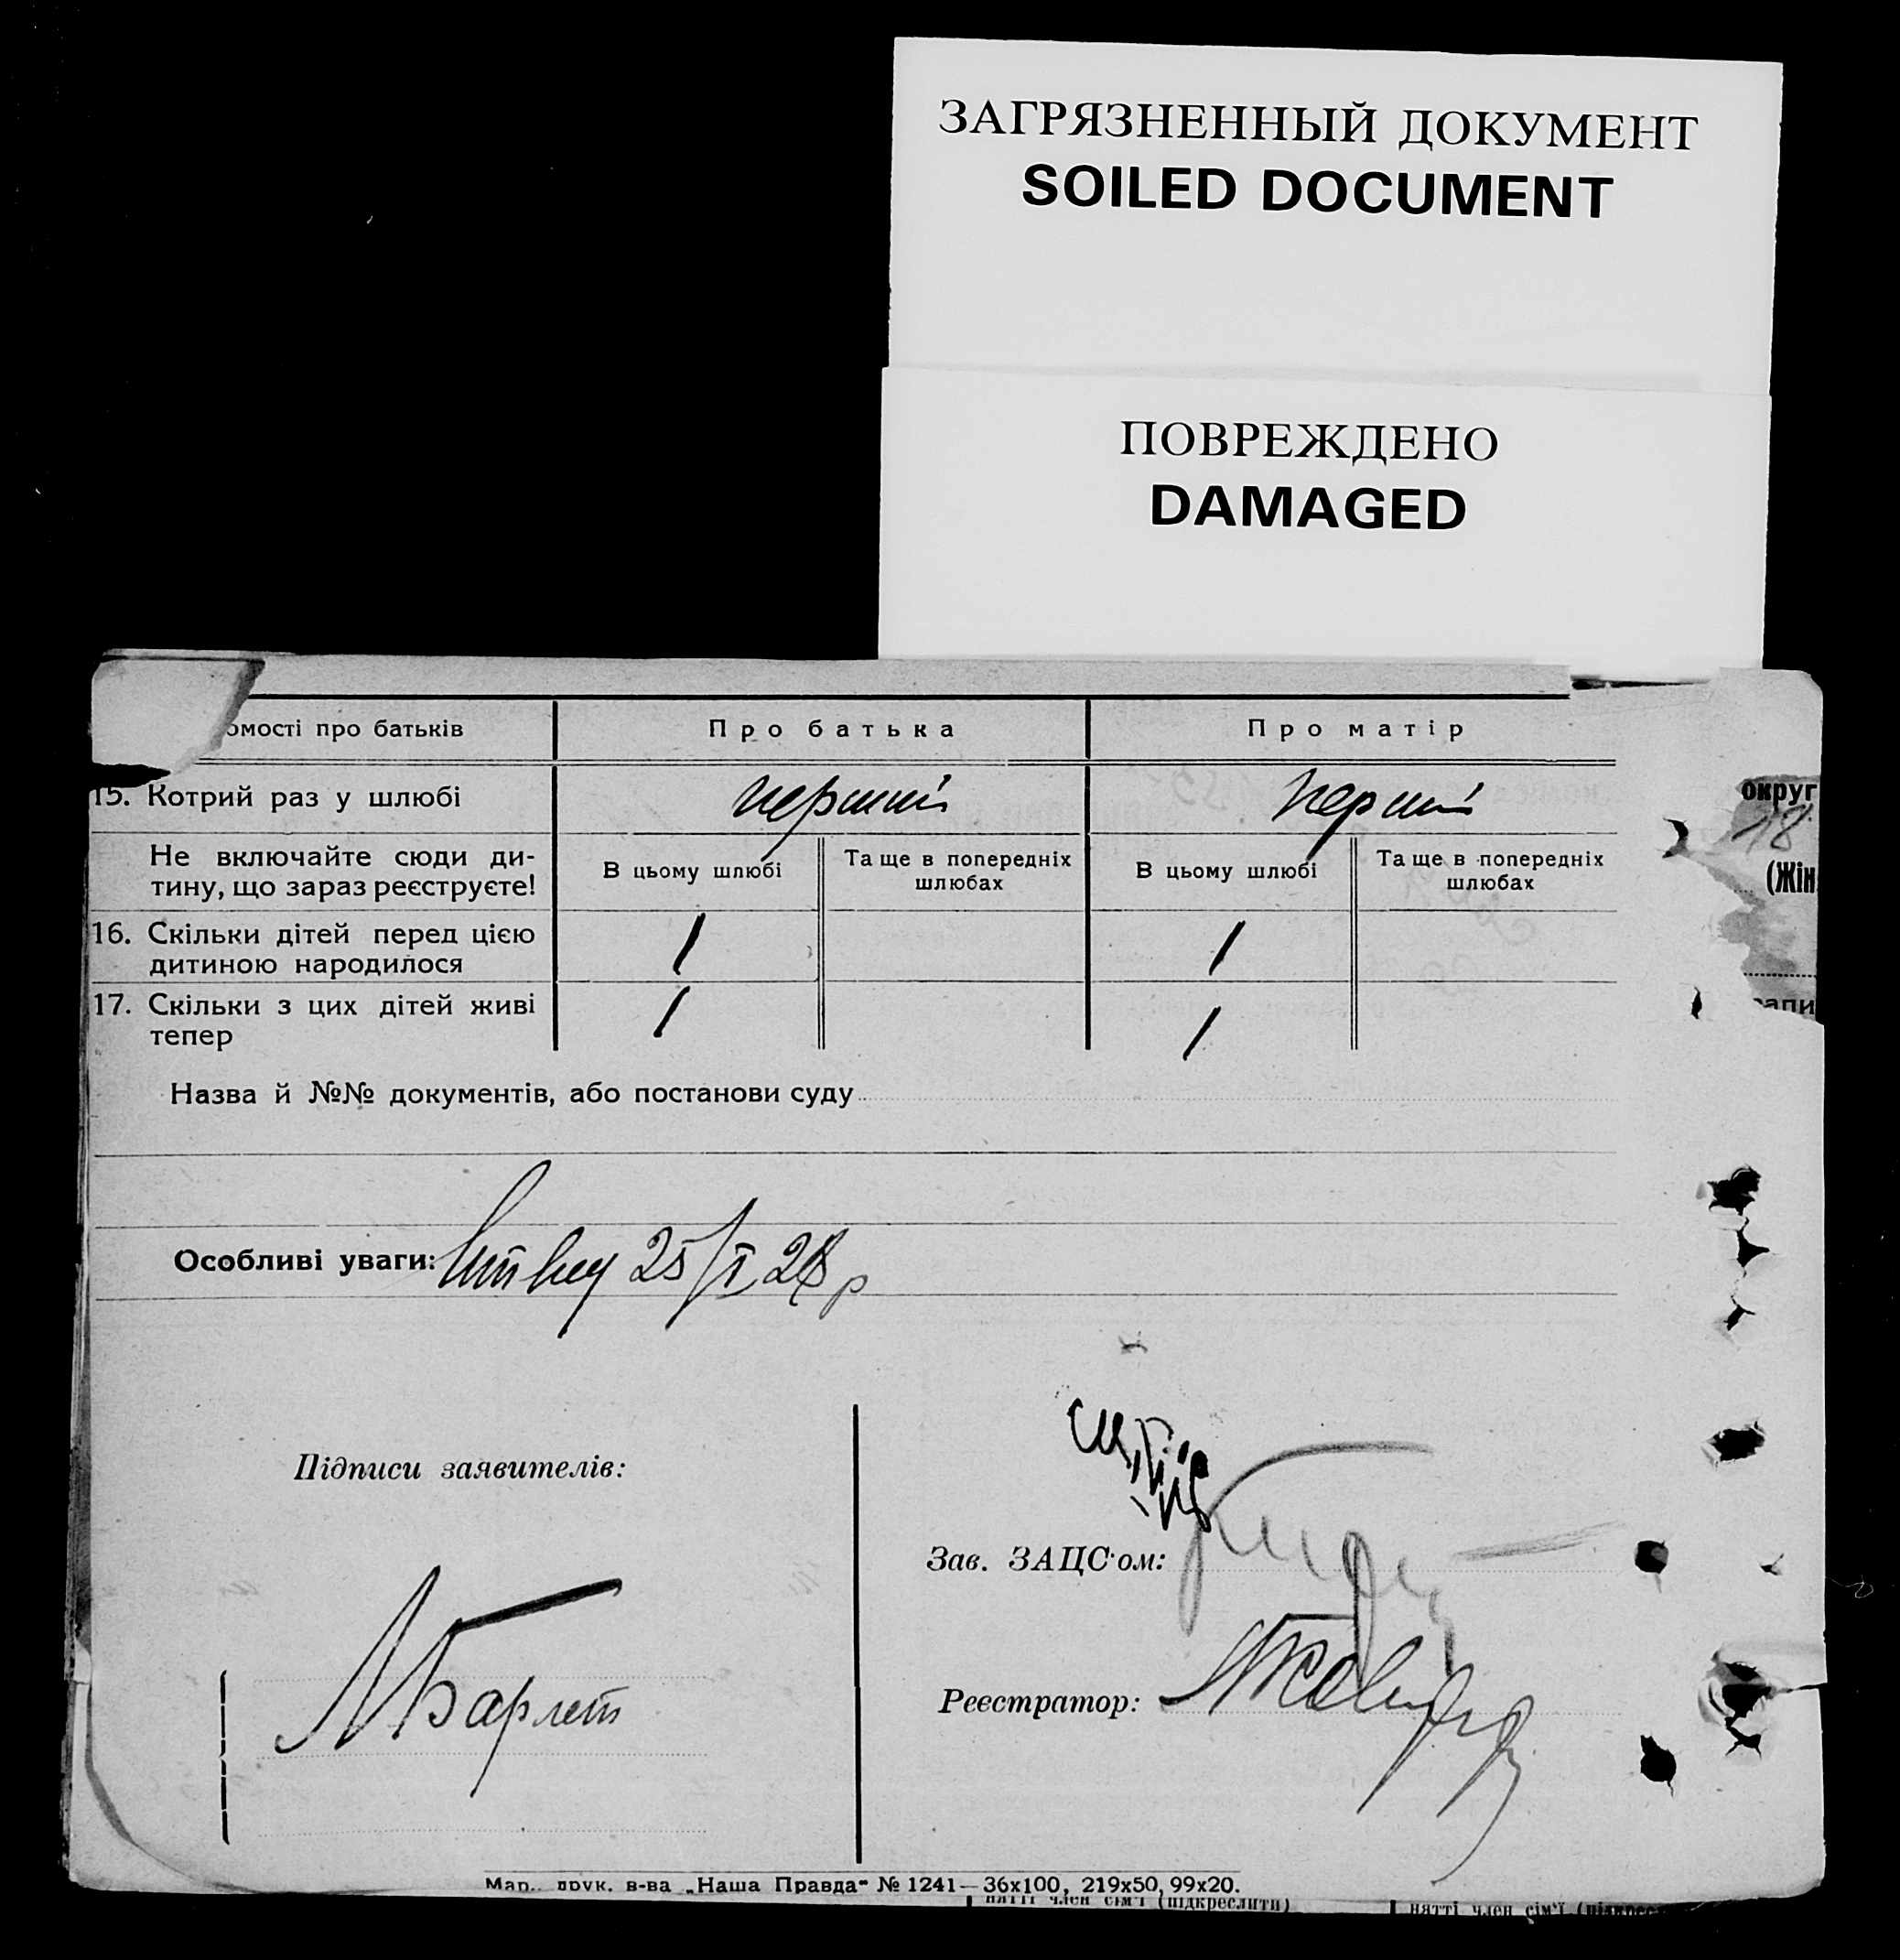 ЗАГРЯЗНЕННЫЙ ДОКУМЕНТ
SOILED DOCUMENT
ПОВРЕЖДЕНО
DAMAGED
омості про батьків
Про батька
Про матір
15. Котрий раз у шлюбі
перший
перший
округ
18
(Жін
Не включайте сюди ди-
тину, що зараз реєструєте!
В цьому шлюбі
Та ще в попередніх
шлюбах
В цьому шлюбі
Та ще в попередніх
шлюбах
16. Скільки дітей перед цією
дитиною народилося
1
1
17. Скільки з цих дітей живі
тепер
1
1
апи
Назва й №№ документів, або постанови суду
Особливі уваги: 25/I 28 р
Підписи заявителів:
Зав. ЗАЦС'ом:
МБарлет
Реєстратор:
Мар. друк. в-ва „Наша Правда" № 1241—36х100, 219х50, 99х20.
нятті член сім'ї (підкреслити)
нятті член сім'ї (підкрес